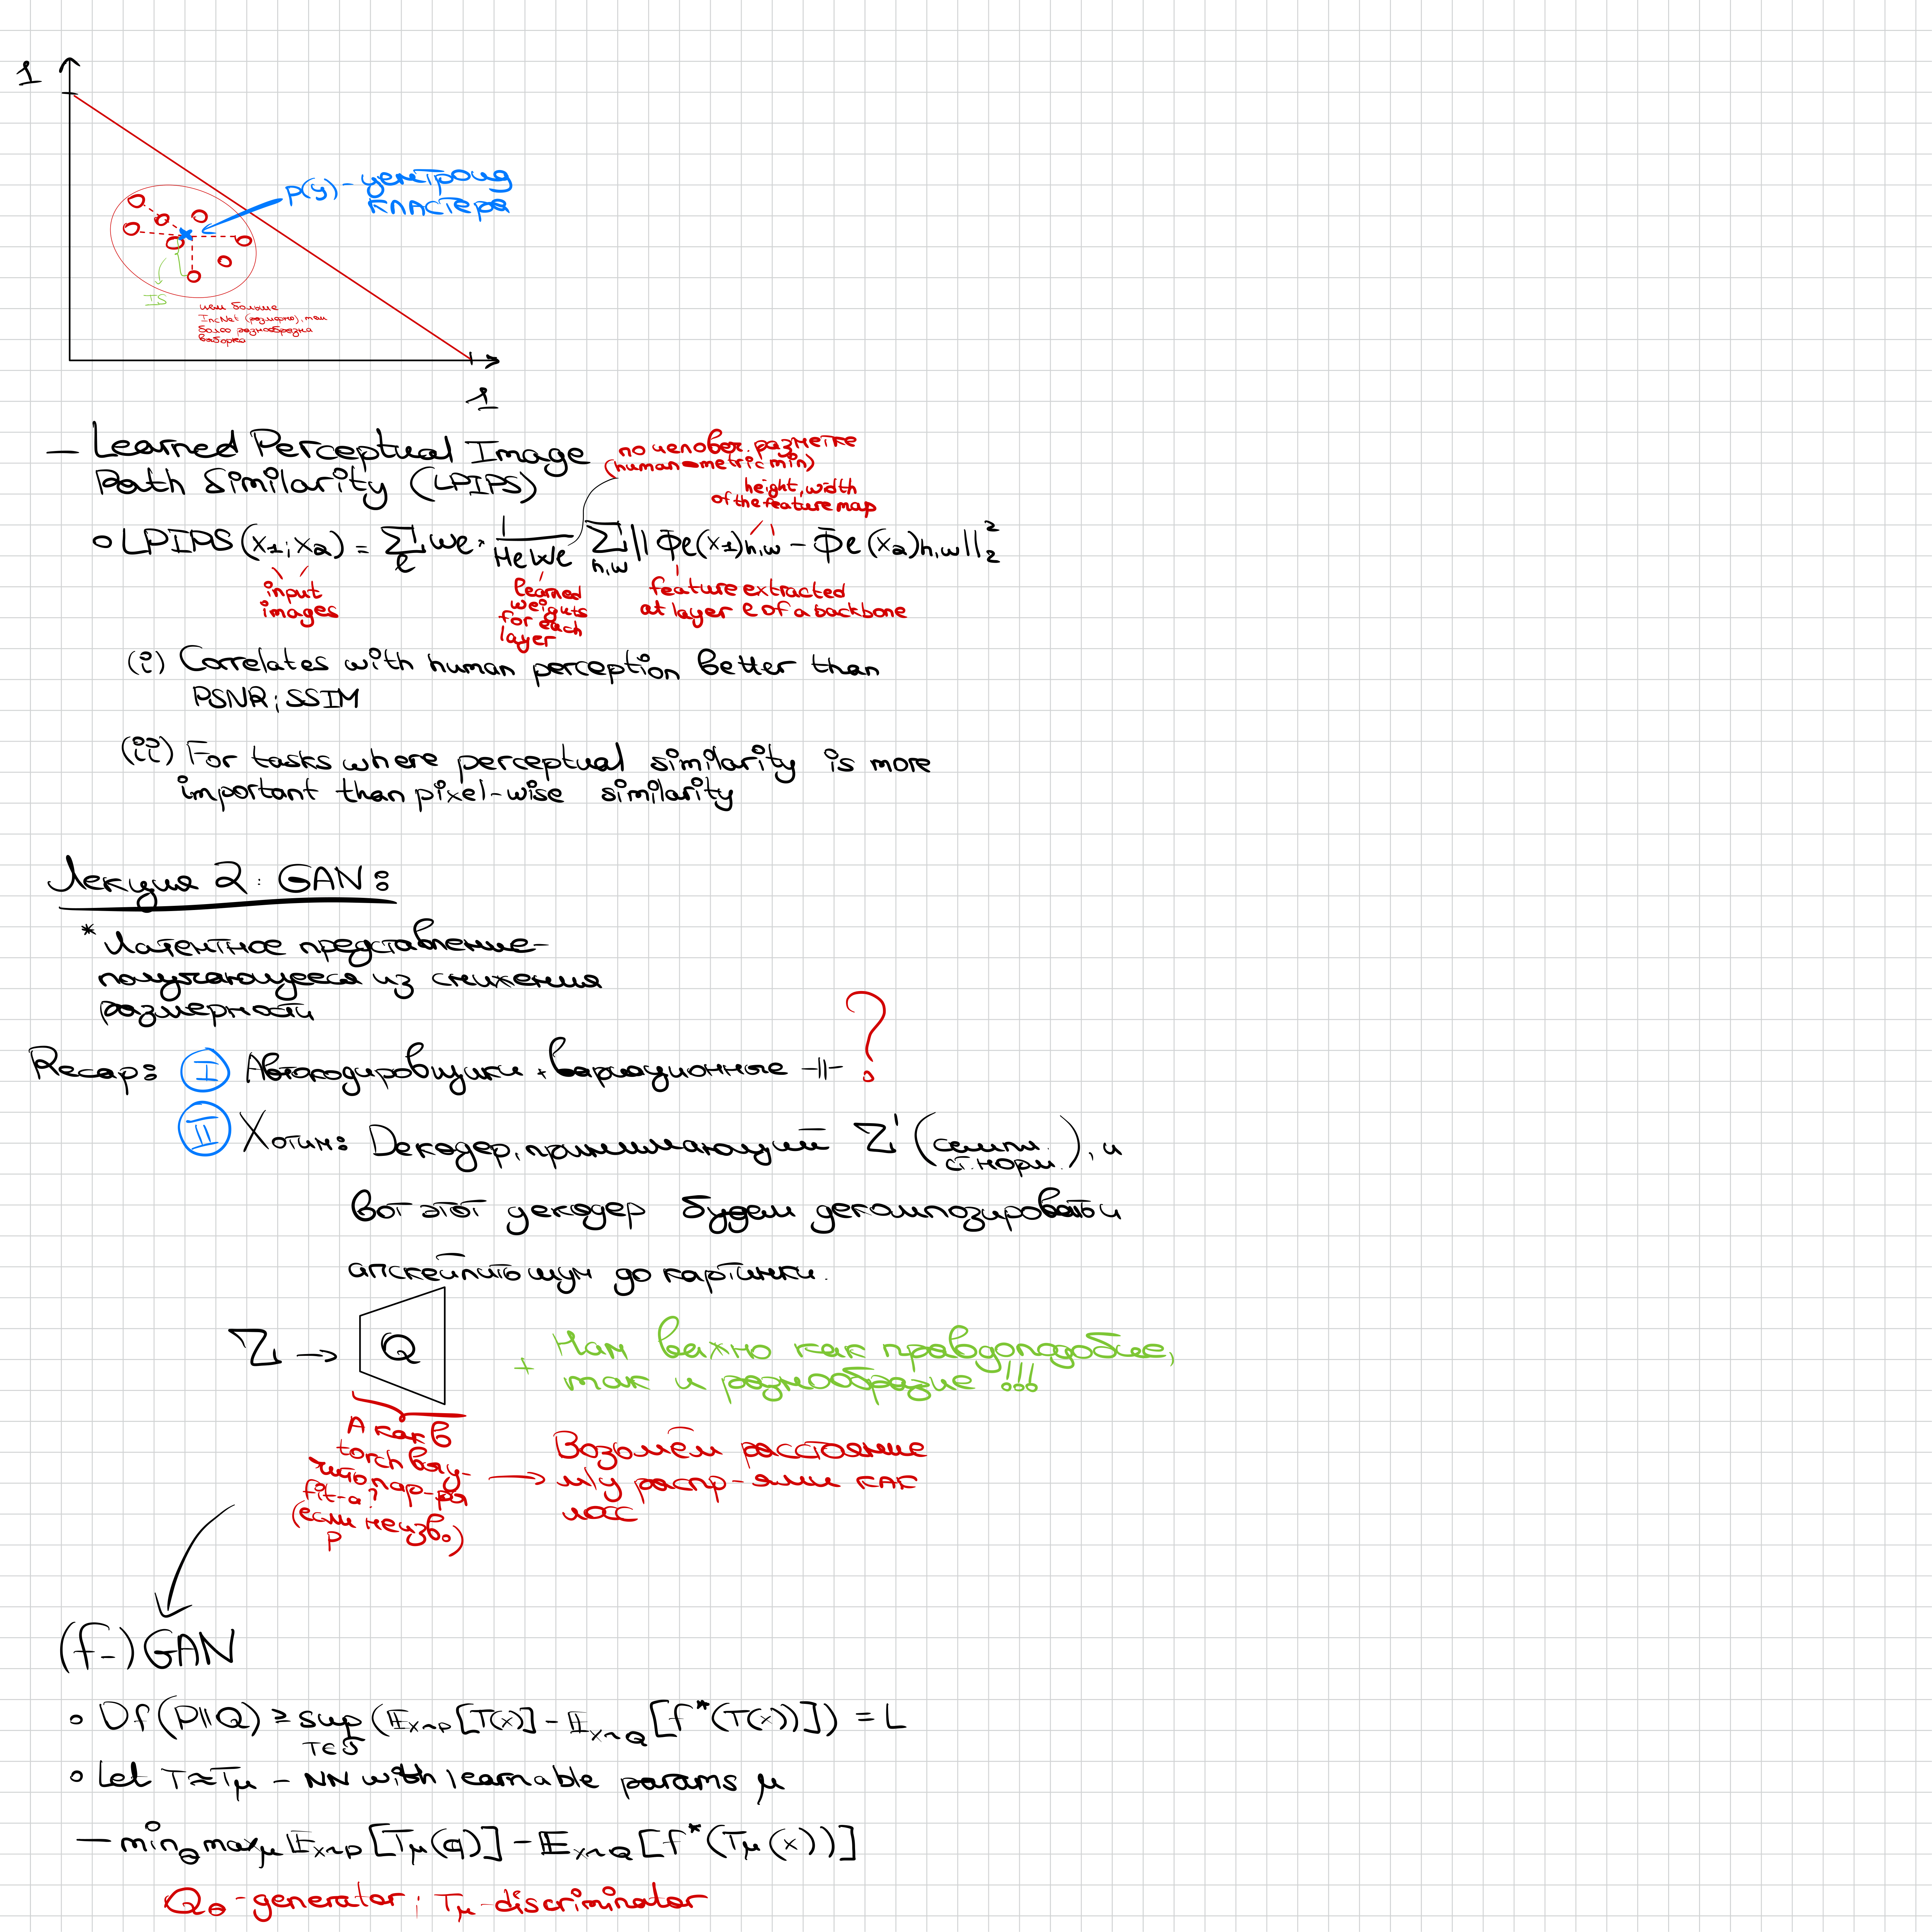 1
p(y) - центроид
кластера
IS
чем больше
IncNet (размерно), тем
более разнообразна
выборка
1
— Learned Perceptual Image
Path Similarity (LPIPS)
по человеч. разметке
(human metric min)
height, width
of the feature map
∘ LPIPS(x₁; x₂) = ∑_ℓ wℓ · 1/(HℓWℓ) ∑_{h,w} || Φ̄ℓ(x₁)h,w - Φ̄ℓ(x₂)h,w ||₂²
input
images
learned
weights
for each
layer
feature extracted
at layer ℓ of a backbone
(i) Correlates with human perception better than
PSNR; SSIM
(ii) For tasks where perceptual similarity is more
important than pixel-wise similarity
Лекция 2: GAN:
* Латентное представление-
получающееся из снижения
размерности
Recap: I Автокодировщики + вариационные -||- ?
II Хотим: Декодер, принимающий Z (сэмпл. ст. норм.), и
вот этот декодер будем декомпозировать и
апскейлить шум до картинки.
Z → Q
+ Нам важно как правдоподобие,
так и разнообразие !!!
А как в
torch выу-
чить пар-ры
fit-а?
(если неизв.
p)
→ Возьмём расстояние
м/у распр-ями как
лосс
(f-) GAN
∘ Df(P||Q) ≥ sup_{T∈𝒯} (𝔼x~p[T(x)] - 𝔼x~Q[f*(T(x))]) = L
∘ Let T≈Tμ - NN with learnable params μ
— minθ maxμ 𝔼x~p[Tμ(q)] - 𝔼x~Q[f*(Tμ(x))]
Qθ - generator; Tμ - discriminator